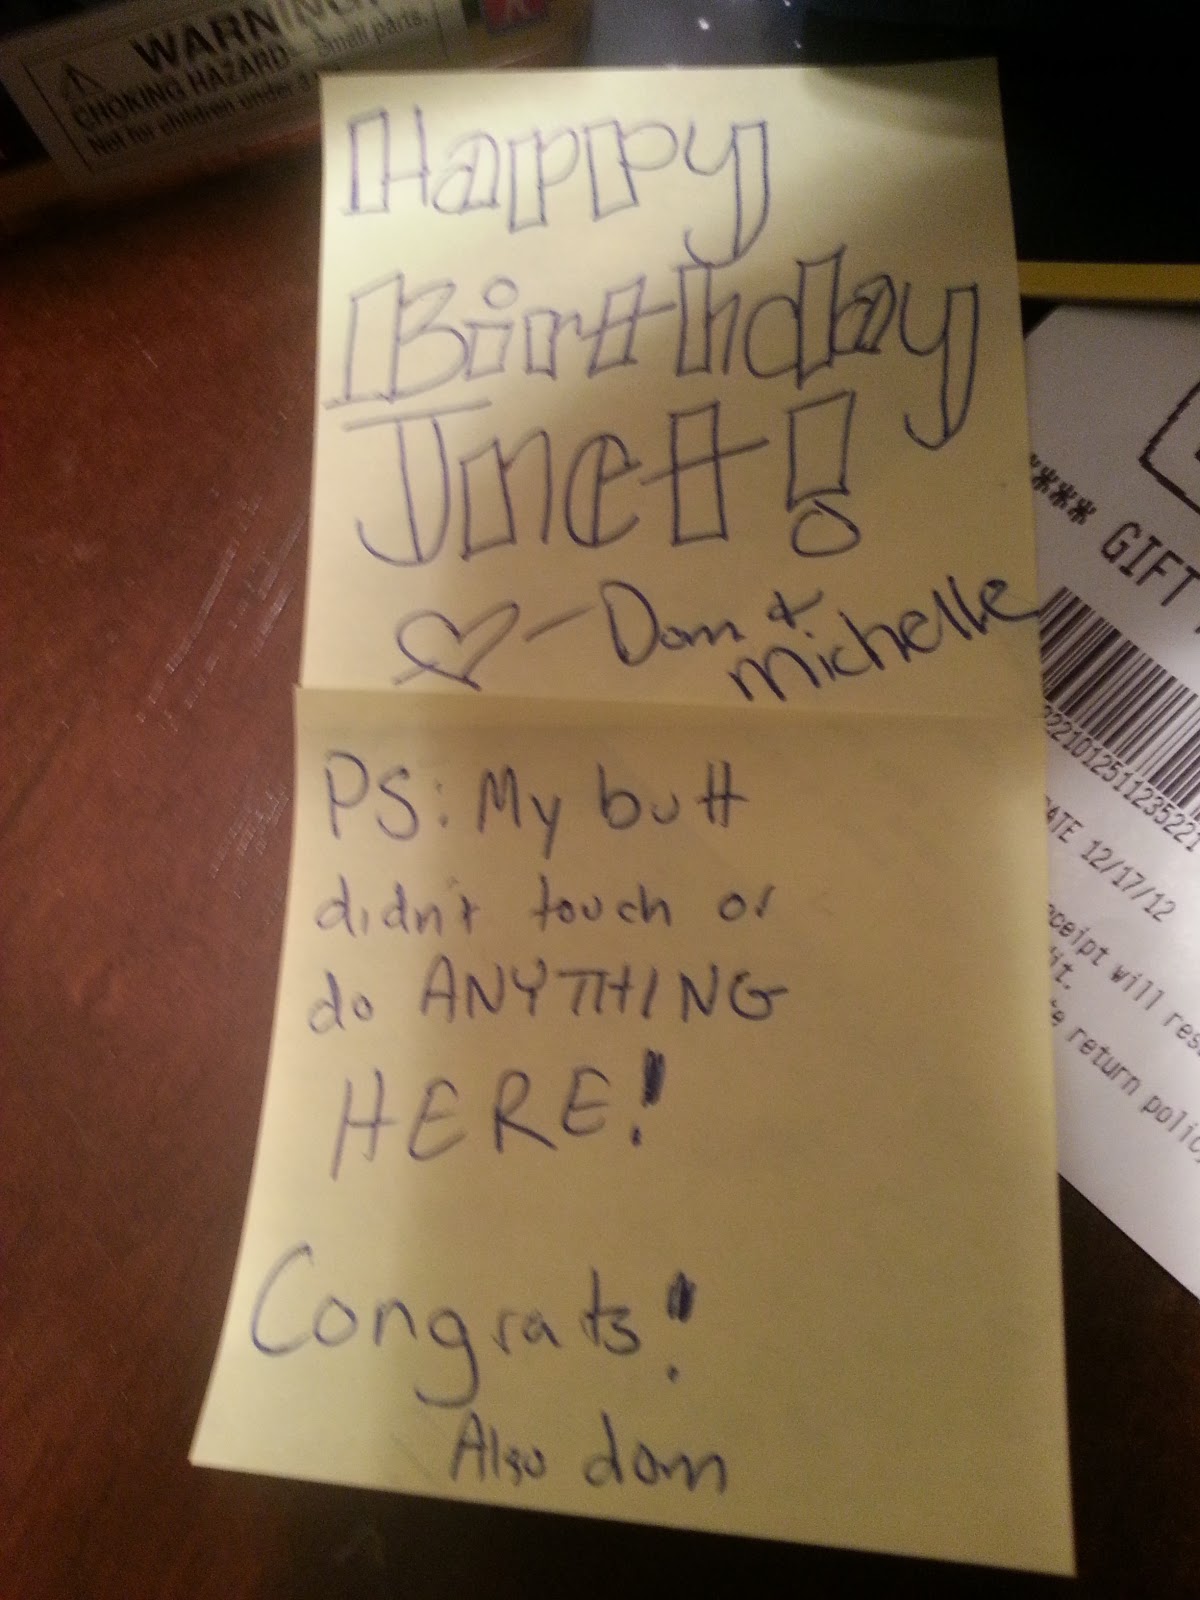 WARNING:
CHOKING HAZARD - Small parts.
Not for children under 3
Happy
Birthday
Jnet!
- Dom &
Michelle
PS: My butt
didn't touch or
do ANYTHING
HERE!
Congrats!
Also dom
**** GIFT
221012511235221
ATE 12/17/12
ceipt will res
it.
e return policy